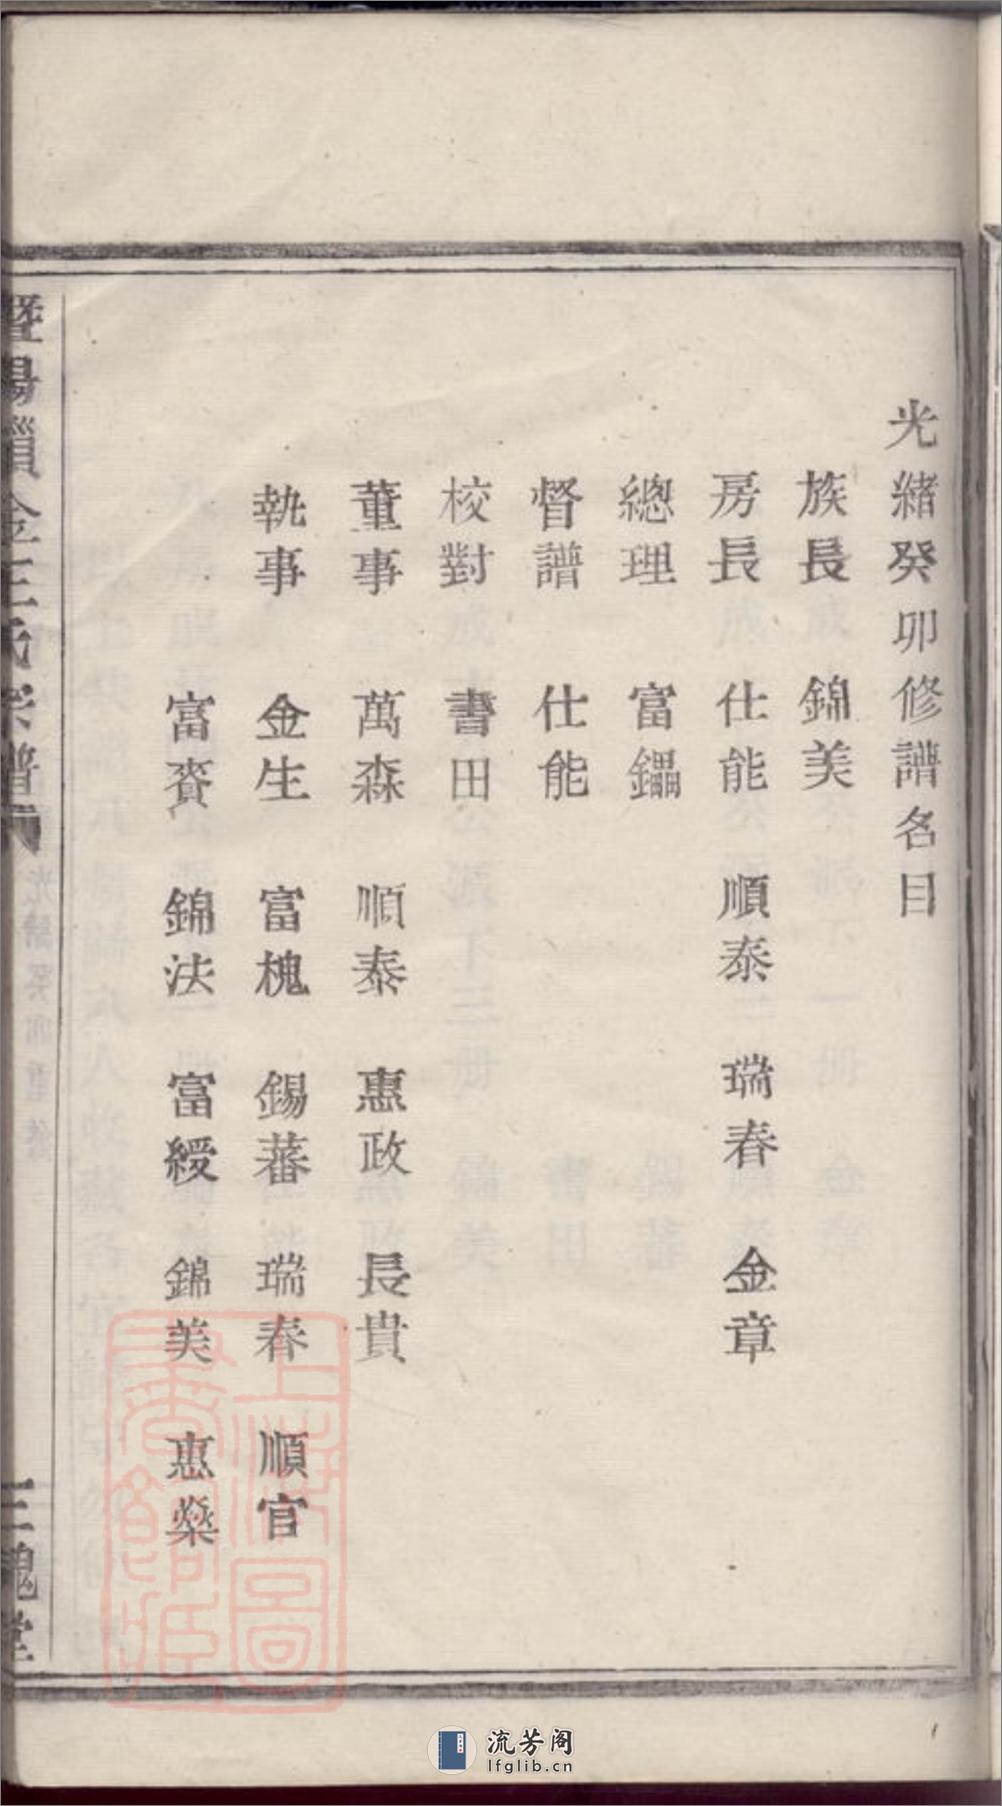 光緒癸卯修譜名目
族長 錦美
房長 仕能 順泰 瑞春 金章
總理 富鑘
督譜 仕能
校對 書田
董事 萬森 順泰 惠政 長貴
執事 金生 富槐 錫蕃 瑞春 順官
富賚 錦法 富綬 錦美 惠燊
暨陽 金王氏宗譜
光緒癸卯重修
三槐堂
上海圖書館藏
流芳阁
lfglib.cn